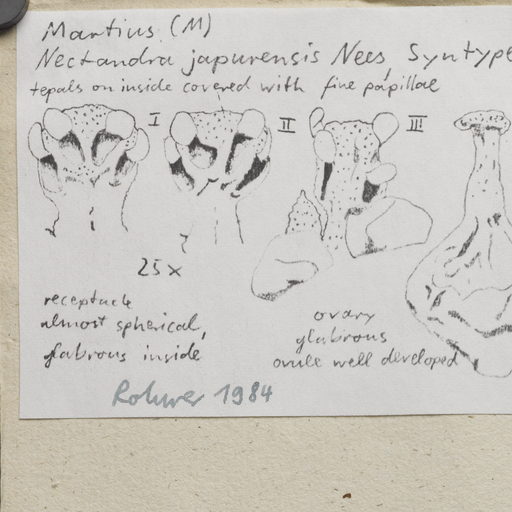 Martius (M)
Nectandra japurensis Nees, Syntype
tepals on inside covered with fine papillae
I II III
25x
receptacle
almost spherical,
glabrous inside
ovary
glabrous
ovule well developed
Rohwer 1984